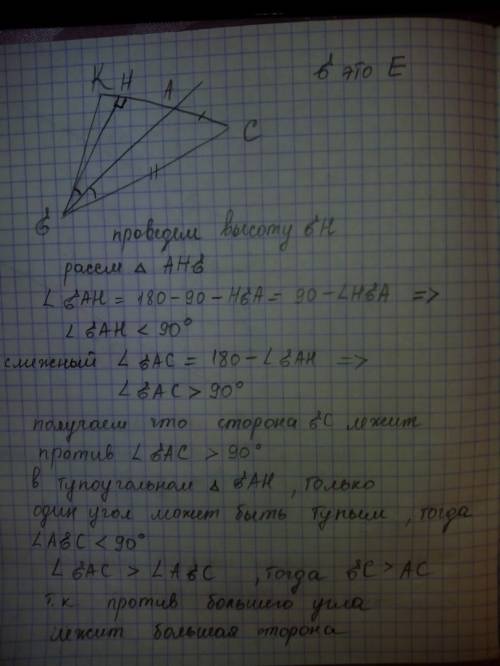 K H A
б это E
C
б
проведем высоту бH
рассм △ AHб
∠ бAH = 180-90-HбA = 90-∠HбA =>
∠ бAH < 90°
смежный ∠ бAC = 180-∠бAH =>
∠ бAC > 90°
получаем что сторона бC лежит
против ∠ бAC > 90°
в тупоугольном △ бAH, только
один угол может быть тупым, тогда
∠AбC < 90°
∠ бAC > ∠AбC, тогда бC > AC
т.к против большего угла
лежит большая сторона